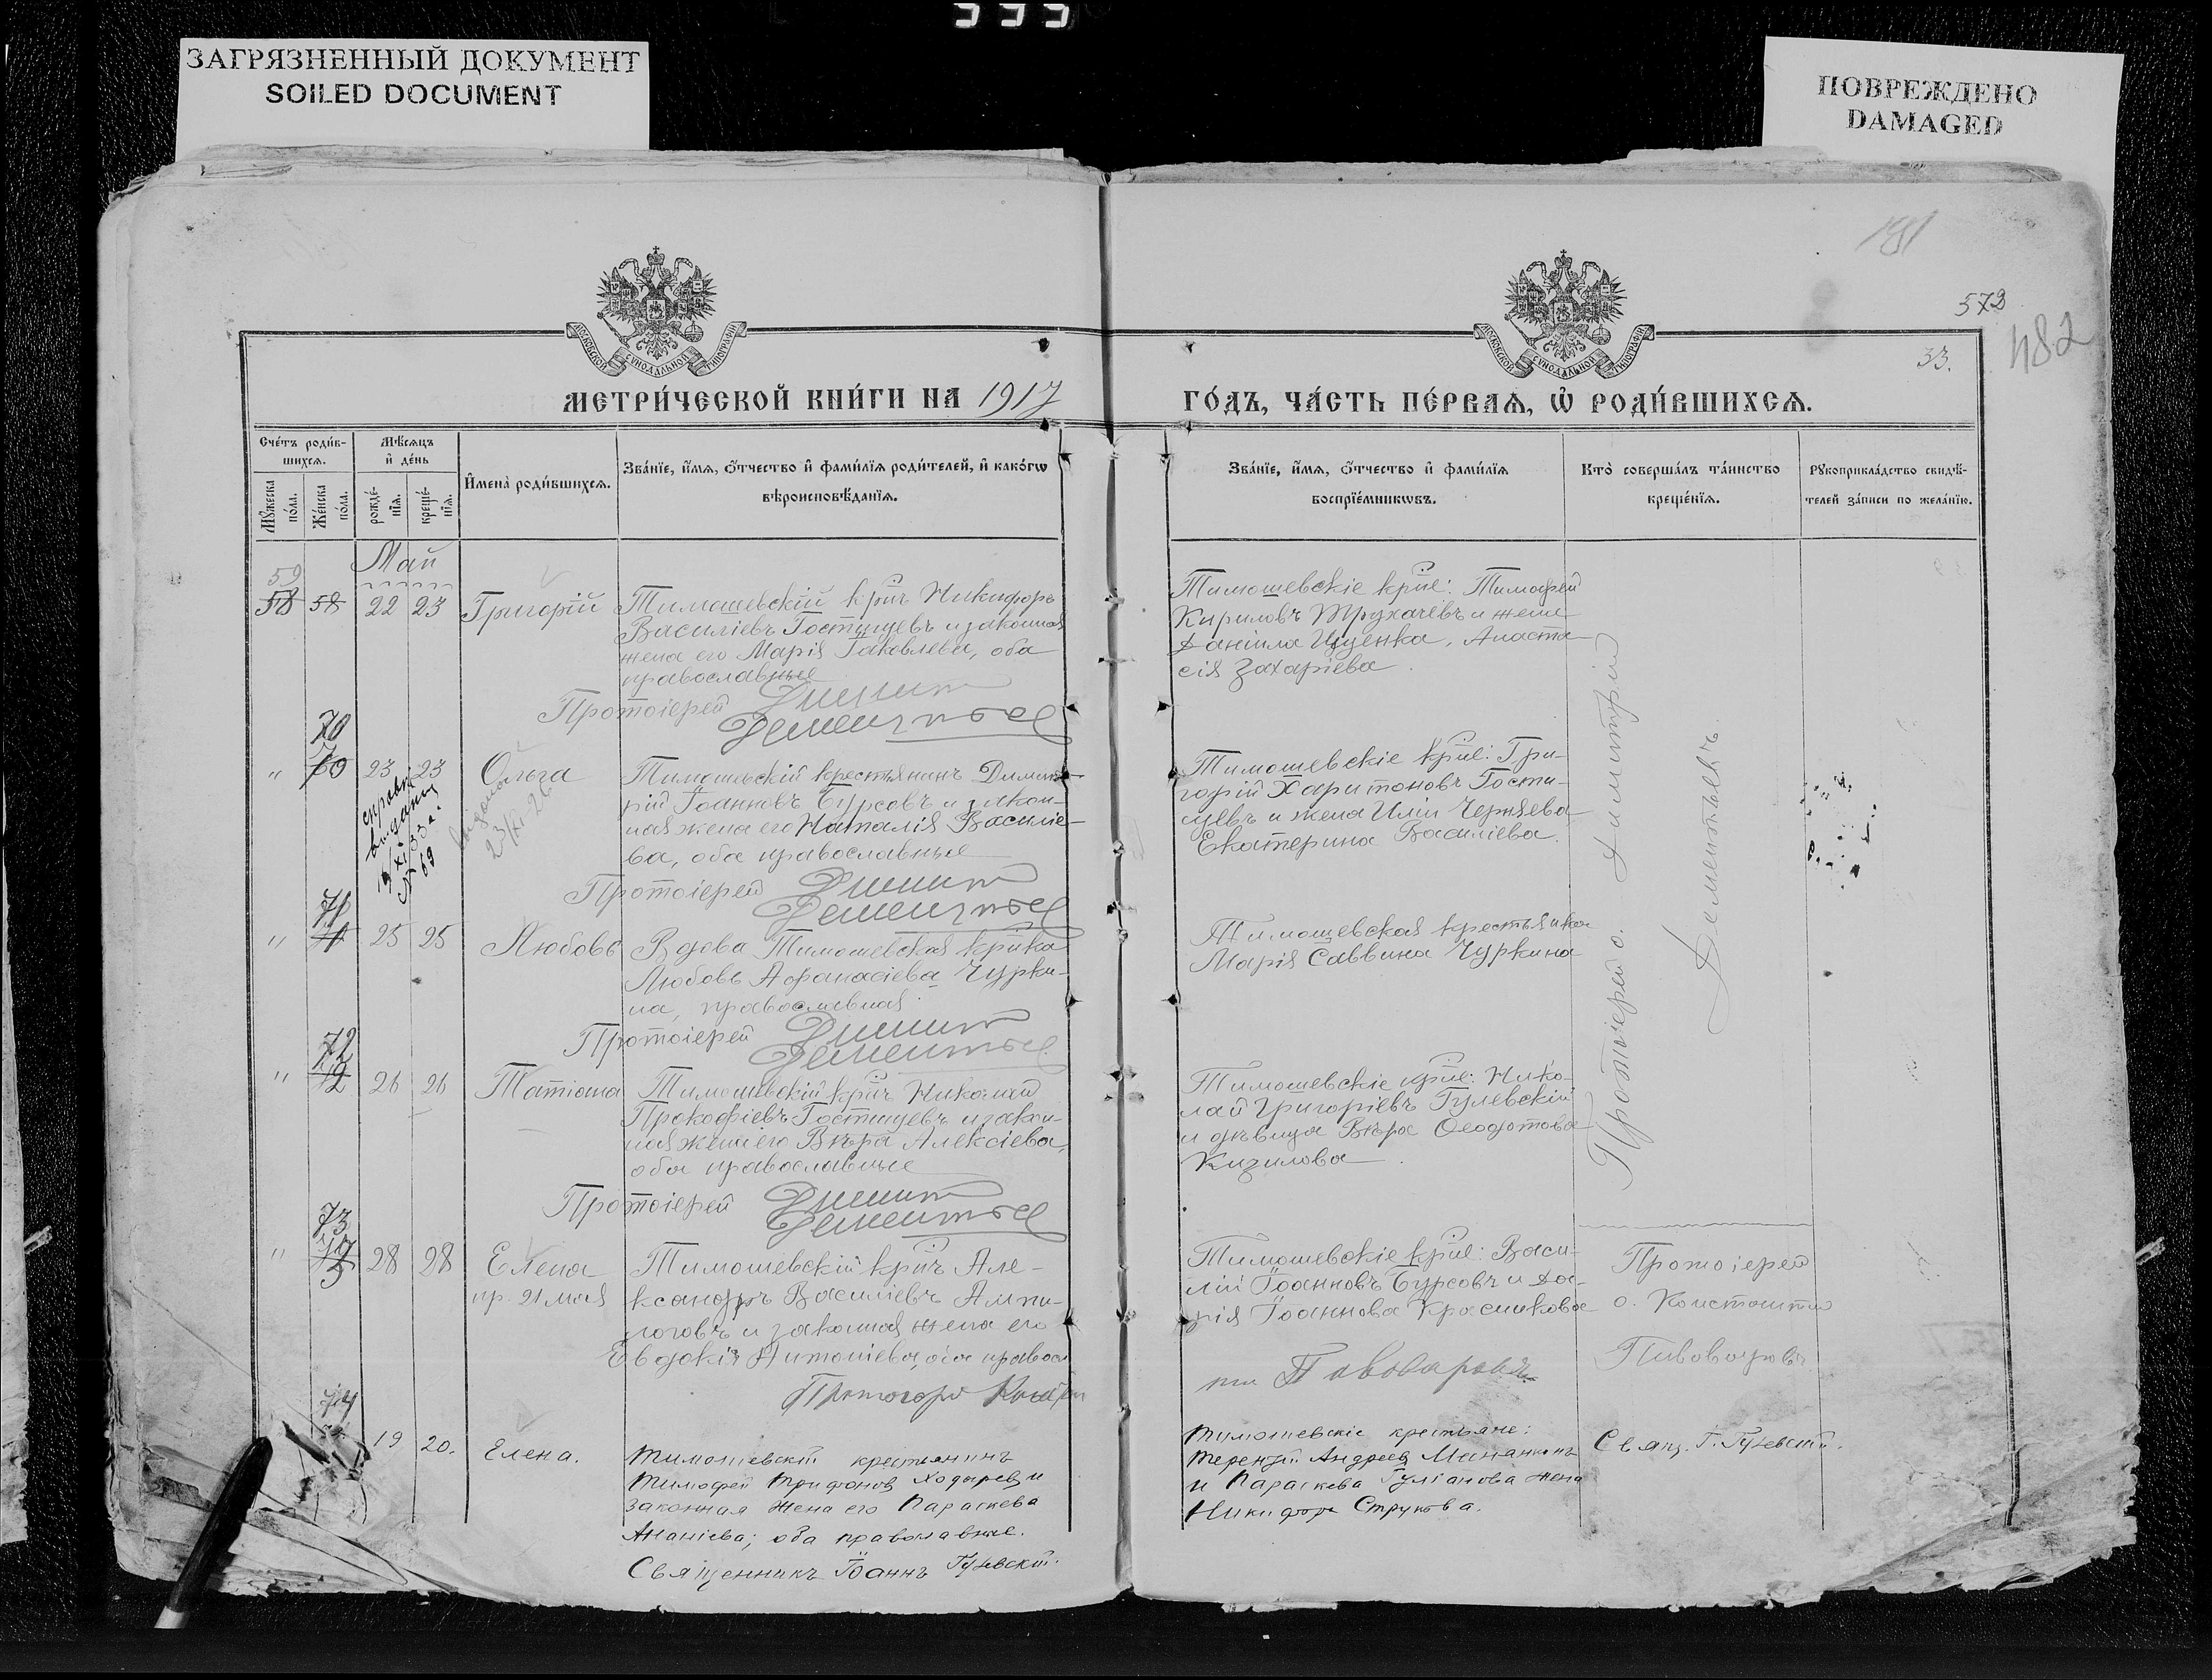 ЗАГРЯЗНЕННЫЙ ДОКУМЕНТ
SOILED DOCUMENT
ПОВРЕЖДЕНО
DAMAGED
572
482
33.
МЕТРИ́ЧЕСКОЙ КНИ́ГИ НА 1917 ГО́ДЪ, ЧА́СТЬ ПЕ́РВАѦ, Ѡ҆ РОДИ́ВШИХСѦ.
Сче́тъ роди́в-
шихсѧ.
Мꙋ́жеска
по́ла.
Же́нска
по́ла.
Мѣ́сѧцъ
и҆ де́нь
рожде́-
нїѧ.
креще́-
нїѧ.
И҆мена̀ роди́вшихсѧ.
Зва́нїе, и҆́мѧ, ѻ҆́тчество и҆ фами́лїѧ роди́телей, и҆ како́гѡ
вѣроисповѣ́данїѧ.
Зва́нїе, и҆́мѧ, ѻ҆́тчество и҆ фами́лїѧ
воспрїе́мникѡвъ.
Кто̀ соверша́лъ та́инство
креще́нїѧ.
Рꙋкоприкла́дство свидѣ́-
телей за́писи по жела́нїю.
Май
59
58 58 22 23 Григорій
Тимошевскій крнъ Никифоръ
Василіевъ Гостищевъ и законная
жена его Марія Іаковлева, оба
православные
Протоіерей Димит
Дементьев
Тимошевскіе крне: Тимофей
Кириловъ Трухачевъ и жена
Даніила Ищенка, Анаста-
сія Захаріева.
70
" 70 23 23 Ольга
справка
выдана
19/XI 33 г.
N 69
выдана
23/XI-26
Тимошевскій крестьянинъ Димит-
рій Іоанновъ Бурсовъ и закон-
ная жена его Наталія Василіе-
ва, оба православные
Протоіерей Димит
Дементьев
Тимошевскіе крне: Гри-
горій Харитоновъ Гости-
щевъ и жена Иліи Черняева
Екатерина Василіева.
71
" 71 25 25 Любовь
Вдова Тимошевская крнка
Любовь Афанасіева Чурки-
на, православная.
Протоіерей Димит
Дементьев
Тимошевская крестьянка
Марія Саввина Чуркина
72
" 72 26 26 Татіана
Тимошевскій крнъ Николай
Прокофіевъ Гостищевъ и закон-
ная жена его Вѣра Алексіева,
оба православные
Протоіерей Димит
Дементьев
Тимошевскіе крне: Нико-
лай Григоріевъ Гулевскій
и дѣвица Вѣра Ѳеодотова
Кизилова.
Протоіерей о. Димитрій
Дементьевъ.
73
" 28 28 Елена
пр. 21 мая
Тимошевскій крнъ Але-
ксандръ Василіевъ Ампи-
логовъ и законная жена его
Евдокія Антоніева, оба правосл
Протоіерей Констан
Тимошевскіе крне: Васи-
лій Іоанновъ Бурсовъ и Да-
рія Іоаннова Красникова
тин Пивоваровъ
Протоіерей
о. Константин
Пивоваровъ
74
19 20. Елена.
Тимошевскій крестьянинъ
Тимофей Трифонов Ходырев и
законная жена его Параскева
Ананіева; оба православные.
Священникъ Іоаннъ Гузевскій.
Тимошевскіе крестьяне:
Терентій Андреев
и Параскева жена
Никифора Струкова.
Свящ. І. Гузевскій.